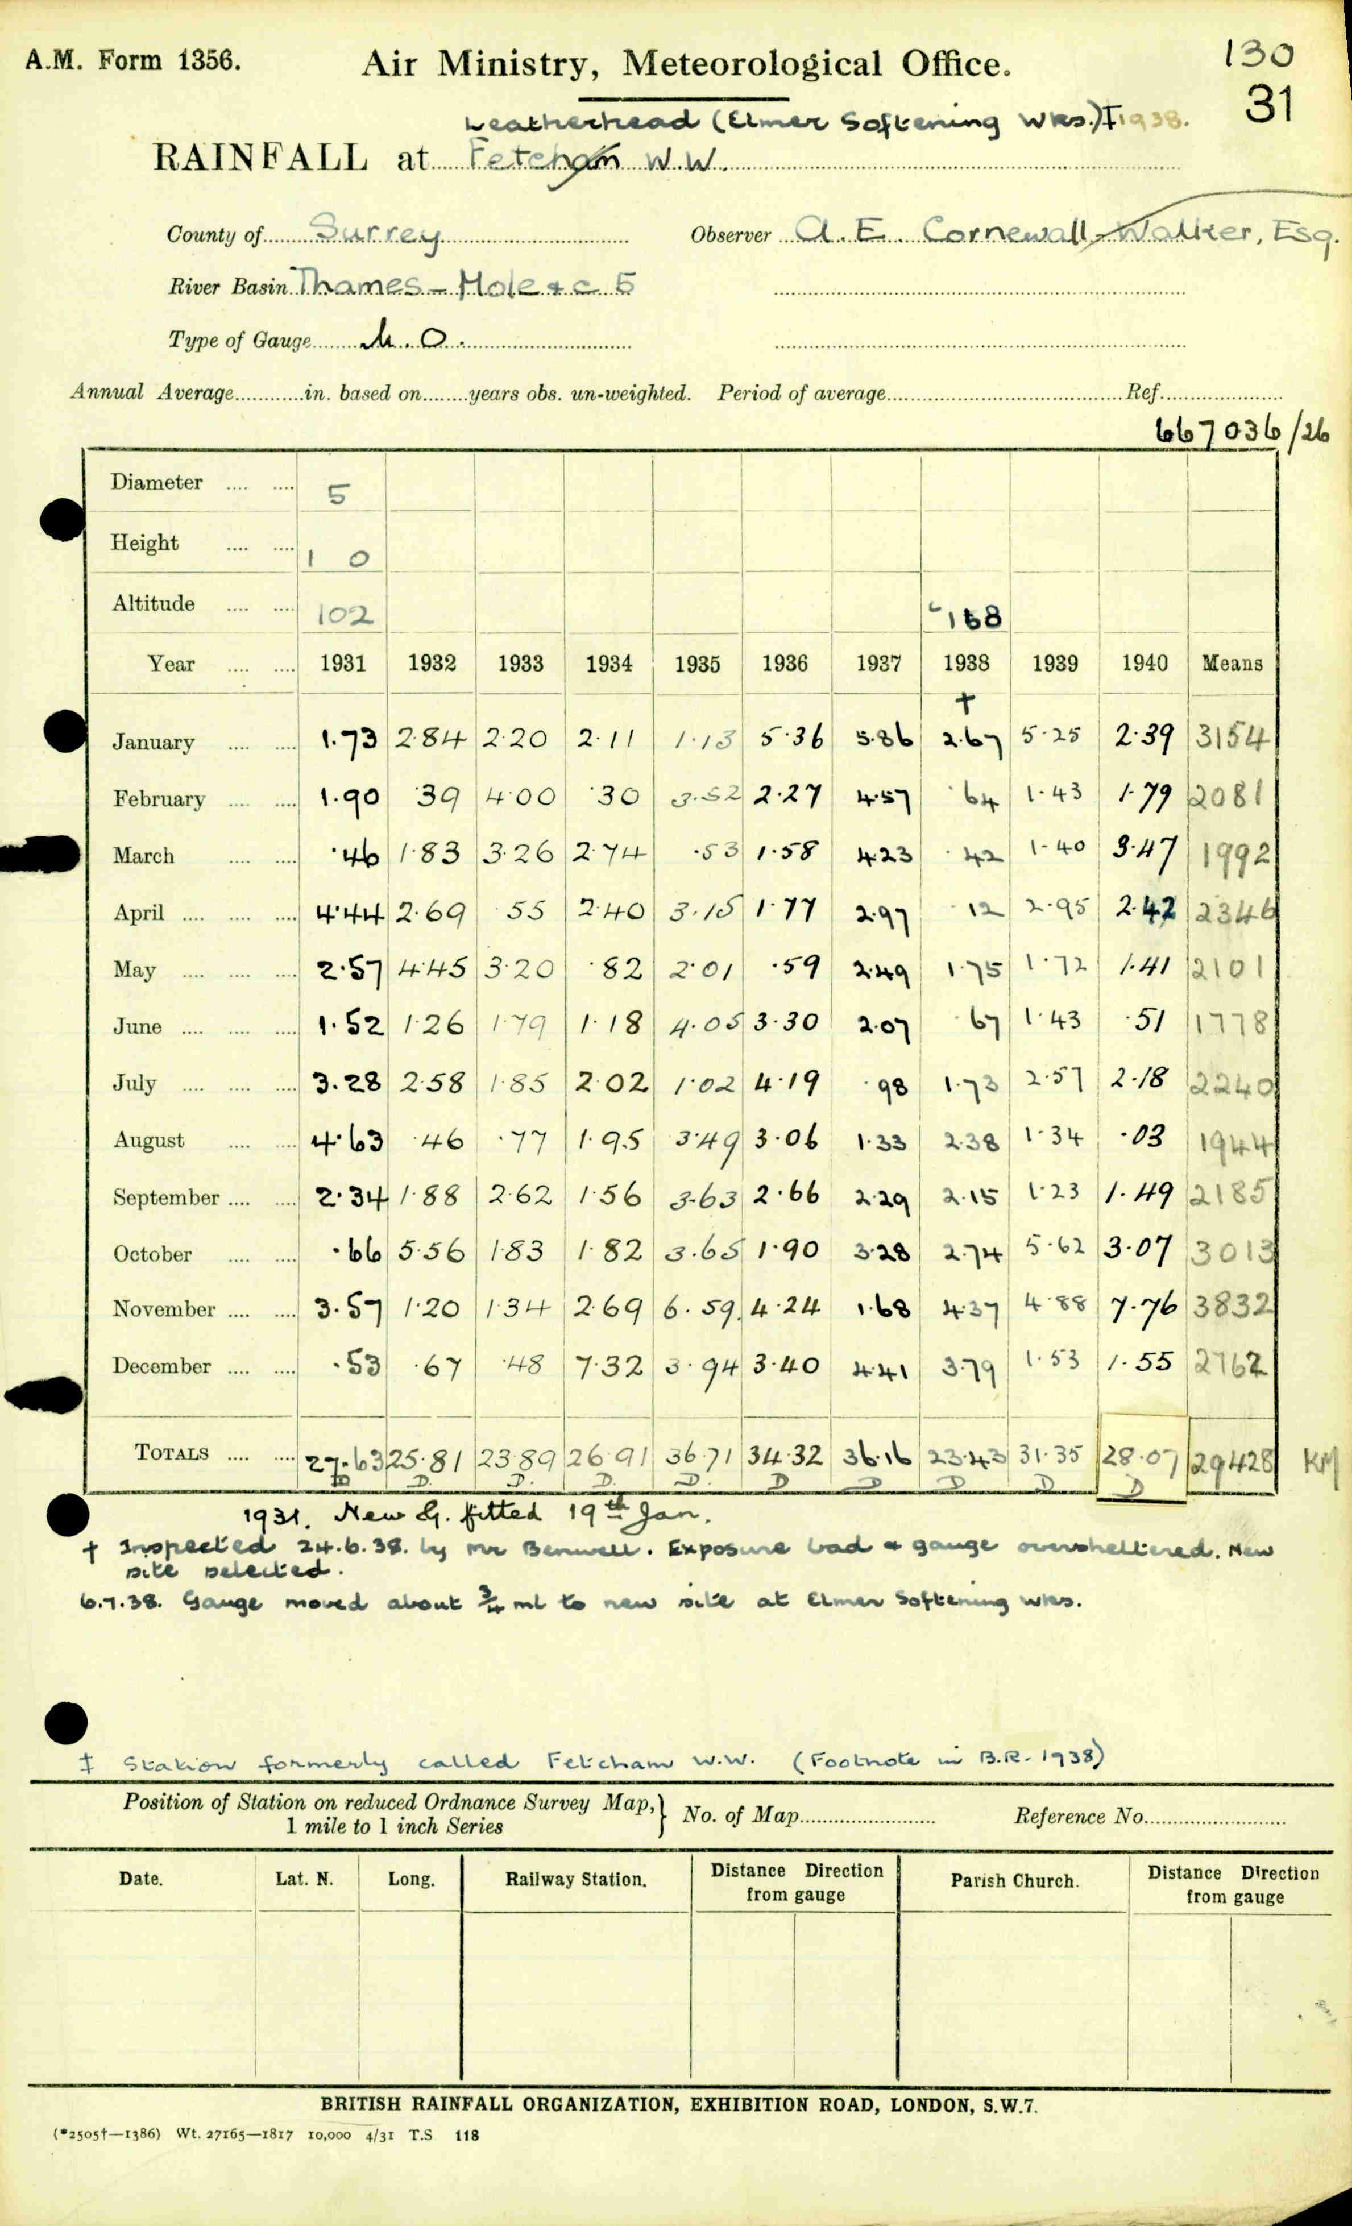 A.M. Form 1356.
Air Ministry, Meteorological Office.
130
31
Leatherhead (Elmer Softening Wks.)‡ 1938.
RAINFALL at Fetcham W.W.
County of Surrey Observer A. E. Cornewall-Walker, Esq.
River Basin Thames – Mole &c 5
Type of Gauge M.O.
Annual Average............in. based on........years obs. un-weighted. Period of average........................................Ref.....................
667036/26
Diameter .... .... 5
Height .... .... 1 0
Altitude .... .... 102 168
Year .... .... 1931 1932 1933 1934 1935 1936 1937 1938 1939 1940 Means
†
January .... .... 1.73 2.84 2.20 2.11 1.13 5.36 5.86 2.67 5.25 2.39 3154
February .... .... 1.90 .39 4.00 .30 3.52 2.27 4.57 .64 1.43 1.79 2081
March .... .... .46 1.83 3.26 2.74 .53 1.58 4.23 .42 1.40 3.47 1992
April .... .... .... 4.44 2.69 .55 2.40 3.15 1.77 2.97 .12 2.95 2.42 2346
May .... .... .... 2.57 4.45 3.20 .82 2.01 .59 2.49 1.75 1.72 1.41 2101
June .... .... .... 1.52 1.26 1.79 1.18 4.05 3.30 2.07 .67 1.43 .51 1778
July .... .... .... 3.28 2.58 1.85 2.02 1.02 4.19 .98 1.73 2.57 2.18 2240
August .... .... 4.63 .46 .77 1.95 3.49 3.06 1.33 2.38 1.34 .03 1944
September .... .... 2.34 1.88 2.62 1.56 3.63 2.66 2.29 2.15 1.23 1.49 2185
October .... .... .66 5.56 1.83 1.82 3.65 1.90 3.28 2.74 5.62 3.07 3013
November .... .... 3.57 1.20 1.34 2.69 6.59 4.24 1.68 4.37 4.88 7.76 3832
December .... .... .53 .67 .48 7.32 3.94 3.40 4.41 3.79 1.53 1.55 2762
TOTALS .... .... 27.63 25.81 23.89 26.91 36.71 34.32 36.16 23.43 31.35 28.07 29428 KM
D D. D. D. D. D D D D D
1931. New G. fitted 19th Jan.
† Inspected 24.6.38. by Mr Benwell. Exposure bad & gauge oversheltered. New
site selected.
6.7.38. Gauge moved about ¾ ml to new site at Elmer Softening Wks.
‡ Station formerly called Fetcham W.W. (Footnote in B.R. 1938)
Position of Station on reduced Ordnance Survey Map,} No. of Map........................ Reference No.........................
1 mile to 1 inch Series
Date. Lat. N. Long. Railway Station. Distance Direction from gauge Parish Church. Distance Direction from gauge
BRITISH RAINFALL ORGANIZATION, EXHIBITION ROAD, LONDON, S.W.7.
(*2505†—1386) Wt. 27165—1817 10,000 4/31 T.S 118